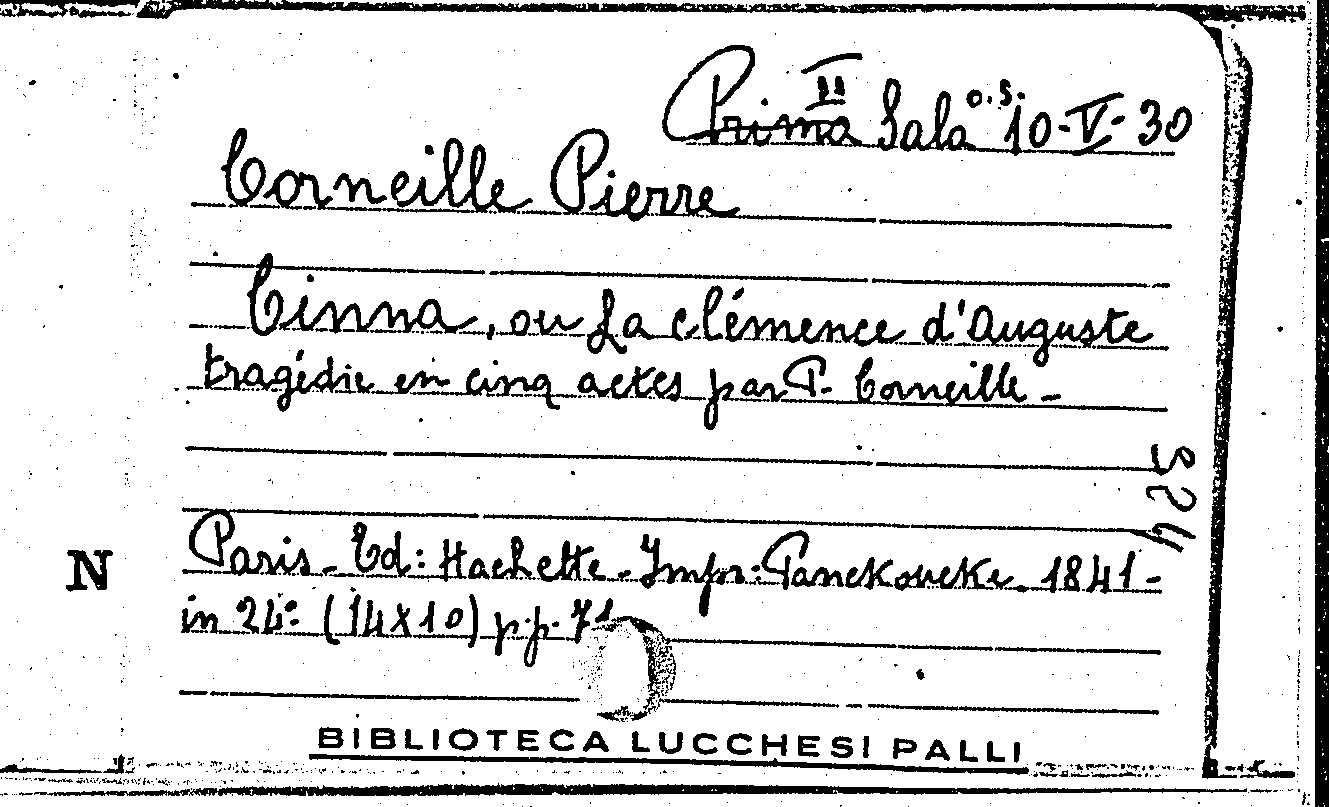 II
Prima Sala o.s. 10-V-30
Corneille Pierre
Cinna, ou La clémence d'Auguste
tragédie en cinq actes par P. Corneille -
324
Paris - Ed: Hachette - Impr: Panckoucke - 1841 -
N
in 24º (14X10) p.p. 71
BIBLIOTECA LUCCHESI PALLI